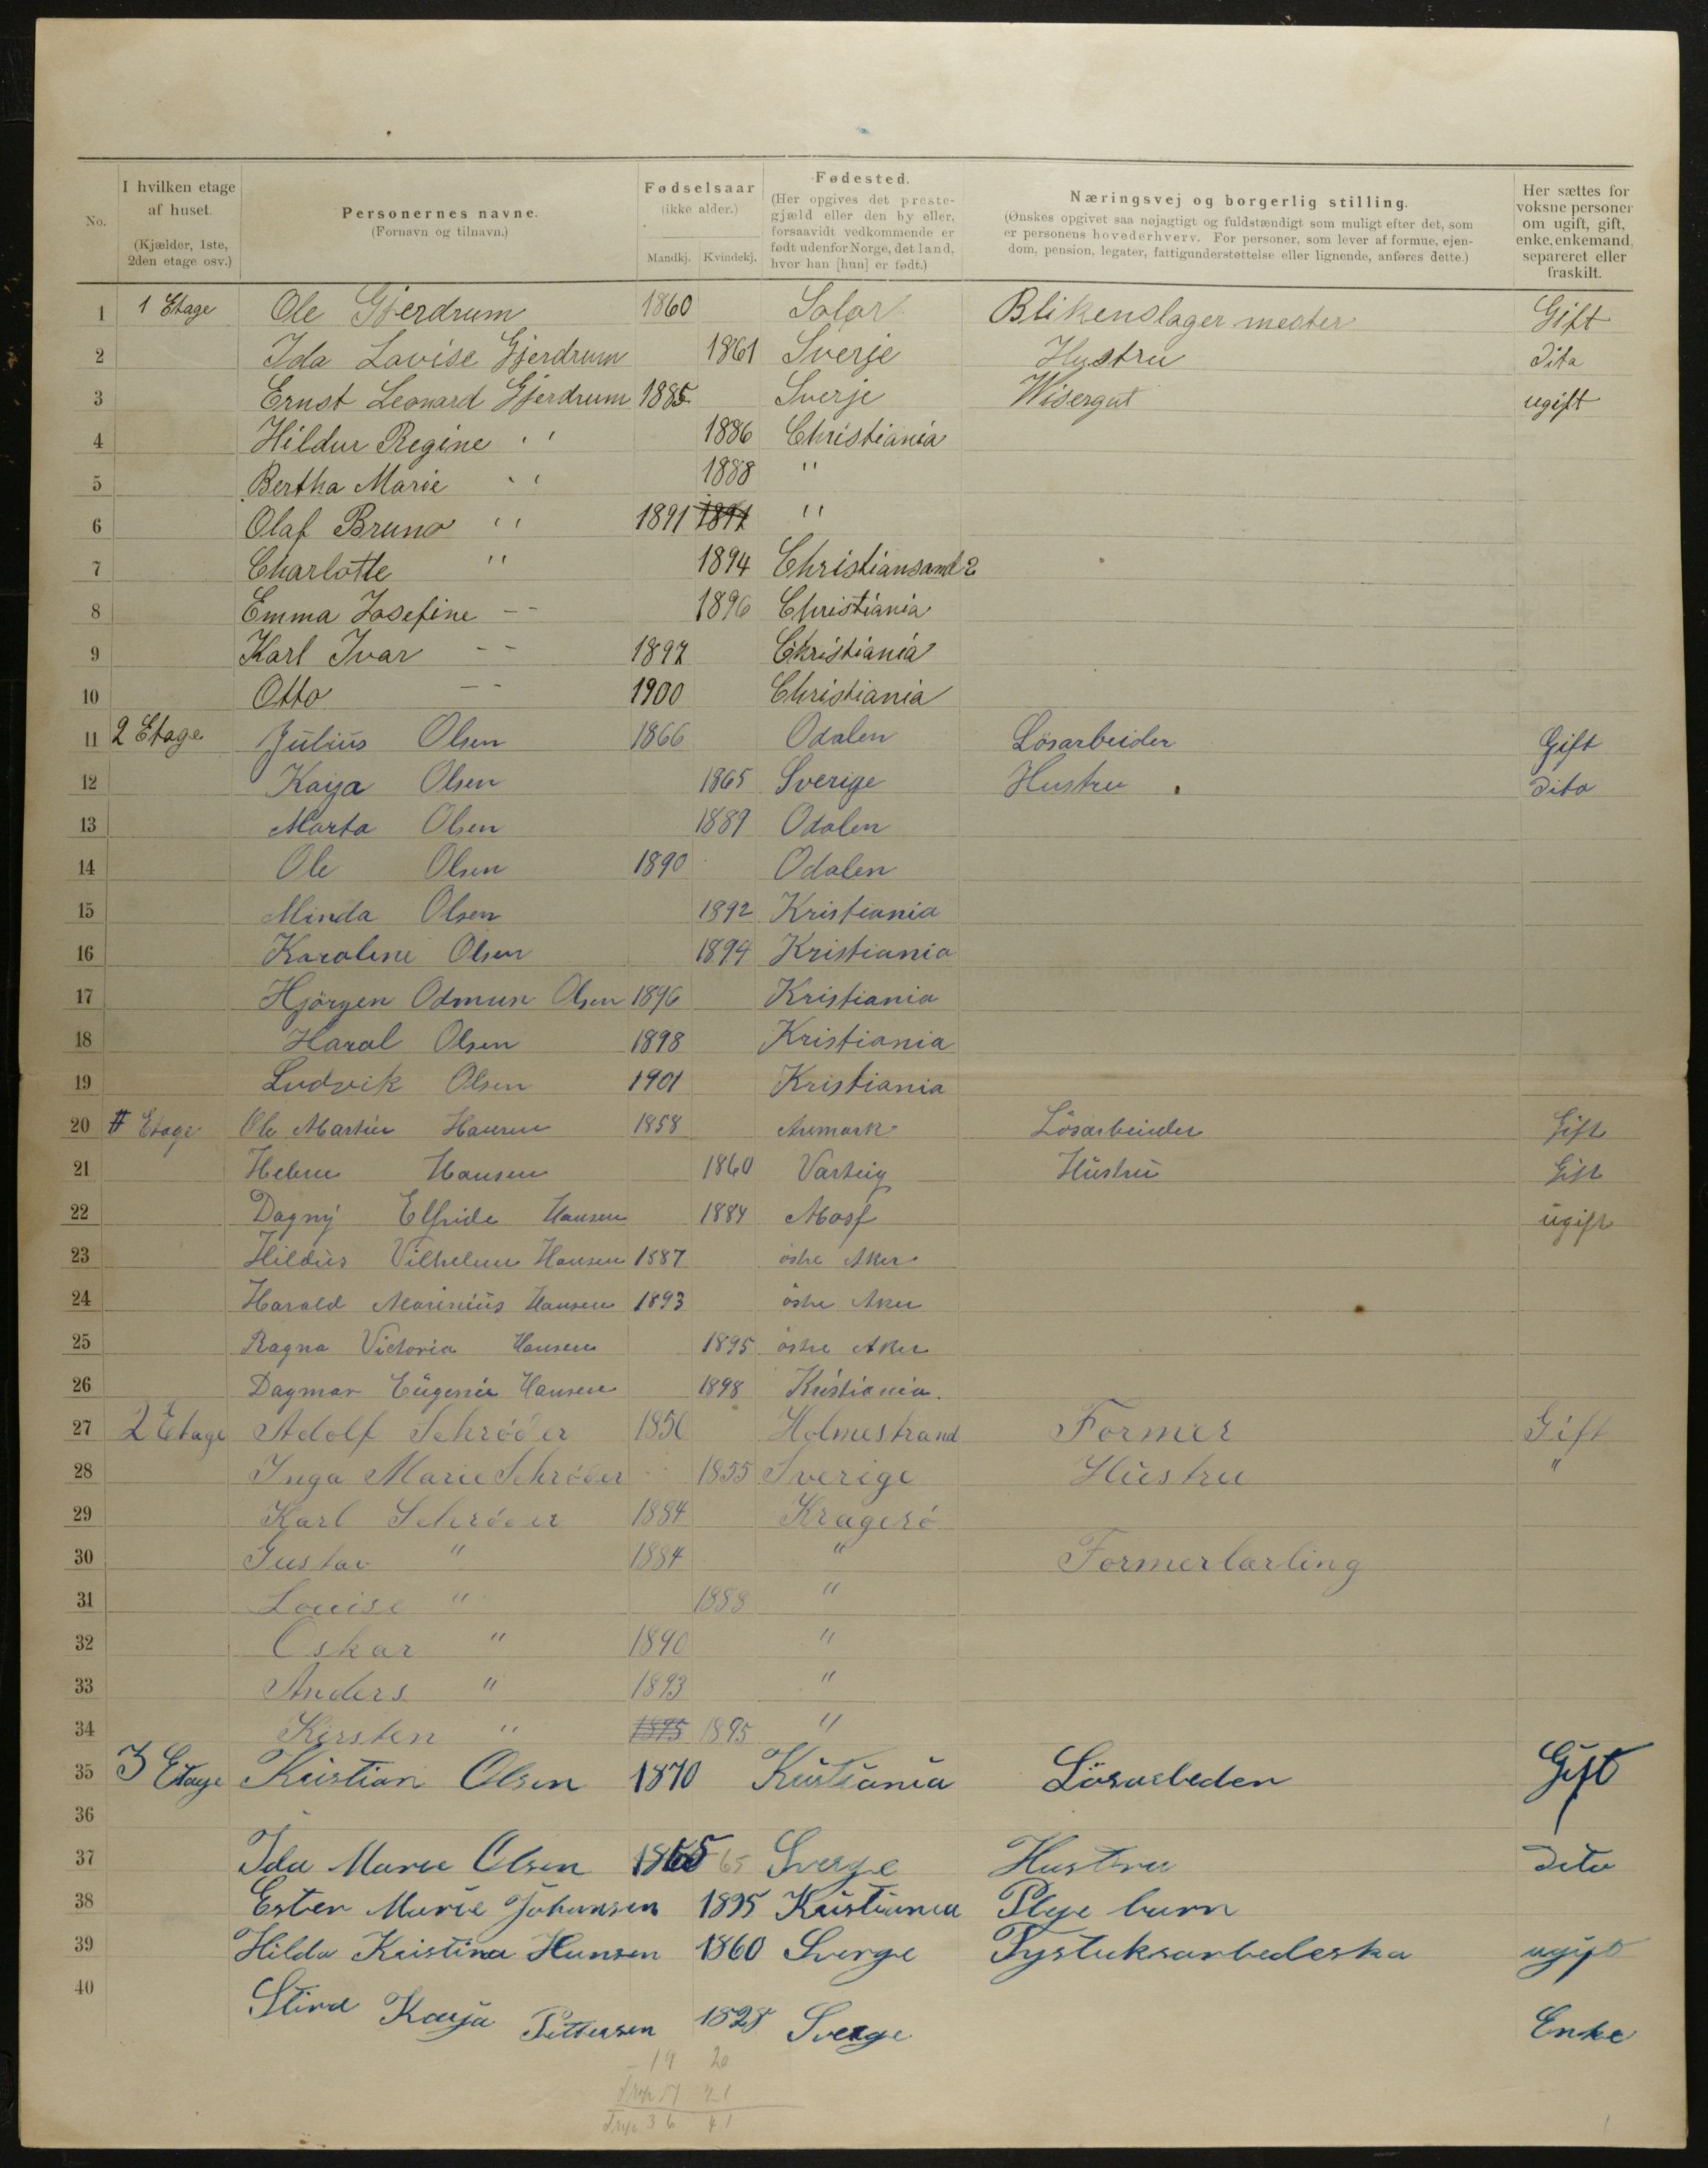 No.
I hvilken etage
af huset.
(Kjælder, 1ste,
2den etage osv.)
Personernes navne.
(Fornavn og tilnavn.)
Fødselsaar
(ikke alder.)
Mandkj. Kvindekj.
Fødested.
(Her opgives det præste-
gjæld eller den by eller,
forsaavidt vedkommende er
født udenfor Norge, det land,
hvor han [hun] er født.)
Næringsvej og borgerlig stilling.
(Ønskes opgivet saa nøjagtigt og fuldstændigt som muligt efter det, som
er personens hovederhverv. For personer, som lever af formue, ejen-
dom, pension, legater, fattigunderstøttelse eller lignende, anføres dette.)
Her sættes for
voksne personer
om ugift, gift,
enke, enkemand,
separeret eller
fraskilt.
1 1 Etage Ole Gjerdrum 1860 Solør Blikenslager mester Gift
2 Ida Lovise Gjerdrum 1861 Sverje Hustru Dita
3 Ernst Leonard Gjerdrum 1885 Sverje Wisergut ugift
4 Hildur Regine " 1886 Christiania
5 Bertha Marie " 1888 "
6 Olaf Bruno " 1891 1891 "
7 Charlotte " 1894 Christiansand
8 Emma Josefine -- 1896 Christiania
9 Karl Ivar -- 1897 Christiania
10 Otto -- 1900 Christiania
11 2 Etage Julius Olsen 1866 Odalen Lösarbeider Gift
12 Kaya Olsen 1865 Sverige Hustru Dito
13 Marta Olsen 1889 Odalen
14 Ole Olsen 1890 Odalen
15 Minda Olsen 1892 Kristiania
16 Karoline Olsen 1894 Kristiania
17 Hjörgen Odmun Olsen 1896 Kristiania
18 Haral Olsen 1898 Kristiania
19 Ludvik Olsen 1901 Kristiania
20 Etage Ole Martin Hansen 1858 Aremark Lösarbeider Gift
21 Helene Hansen 1860 Varteig Hustru Gift
22 Dagny Elfride Hansen 1884 Mosf ugift
23 Hildus Vilhelm Hansen 1887 östre Aker
24 Harald Marinius Hansen 1893 östre Aker
25 Ragna Victoria Hansen 1895 östre Aker
26 Dagmar Eugenie Hansen 1898 Kristiania.
27 2 Etage Adolf Schrøder 1850 Holmestrand Former Gift
28 Inga Marie Schrøder 1855 Sverige Hustru "
29 Karl Schrøder 1884 Kragerö
30 Gustav " 1884 " Formerlærling
31 Louise " 1888 "
32 Oskar " 1890 "
33 Anders " 1893 "
34 Kirsten " 1895 1895 "
35 3 Etage Kristian Olsen 1870 Kristiania Lösarbeden Gift
36
37 Ida Marie Olsen 1865 65 Sverge Hustru Dito
38 Ester Marie Johansen 1895 Kristiania Pleje barn
39 Hilda Kristina Hansen 1860 Sverge Fystuksarbedeska ugift
40 Stina Kaja Pettersen 1828 Sverge Enke
19 20
17 21
36 41